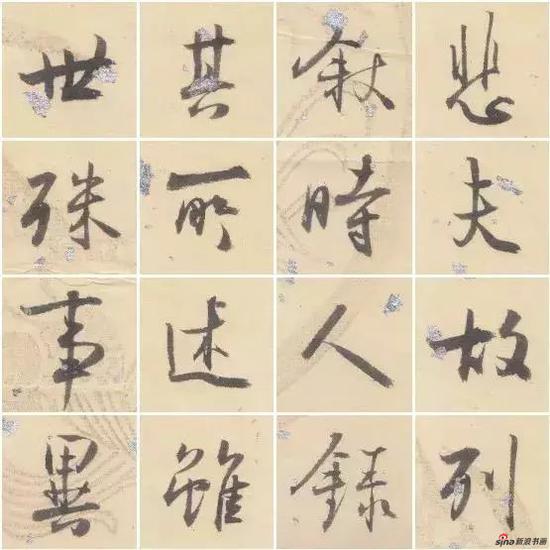 悲夫故列
敘時人錄
其所述雖
世殊事異
sina新浪书画